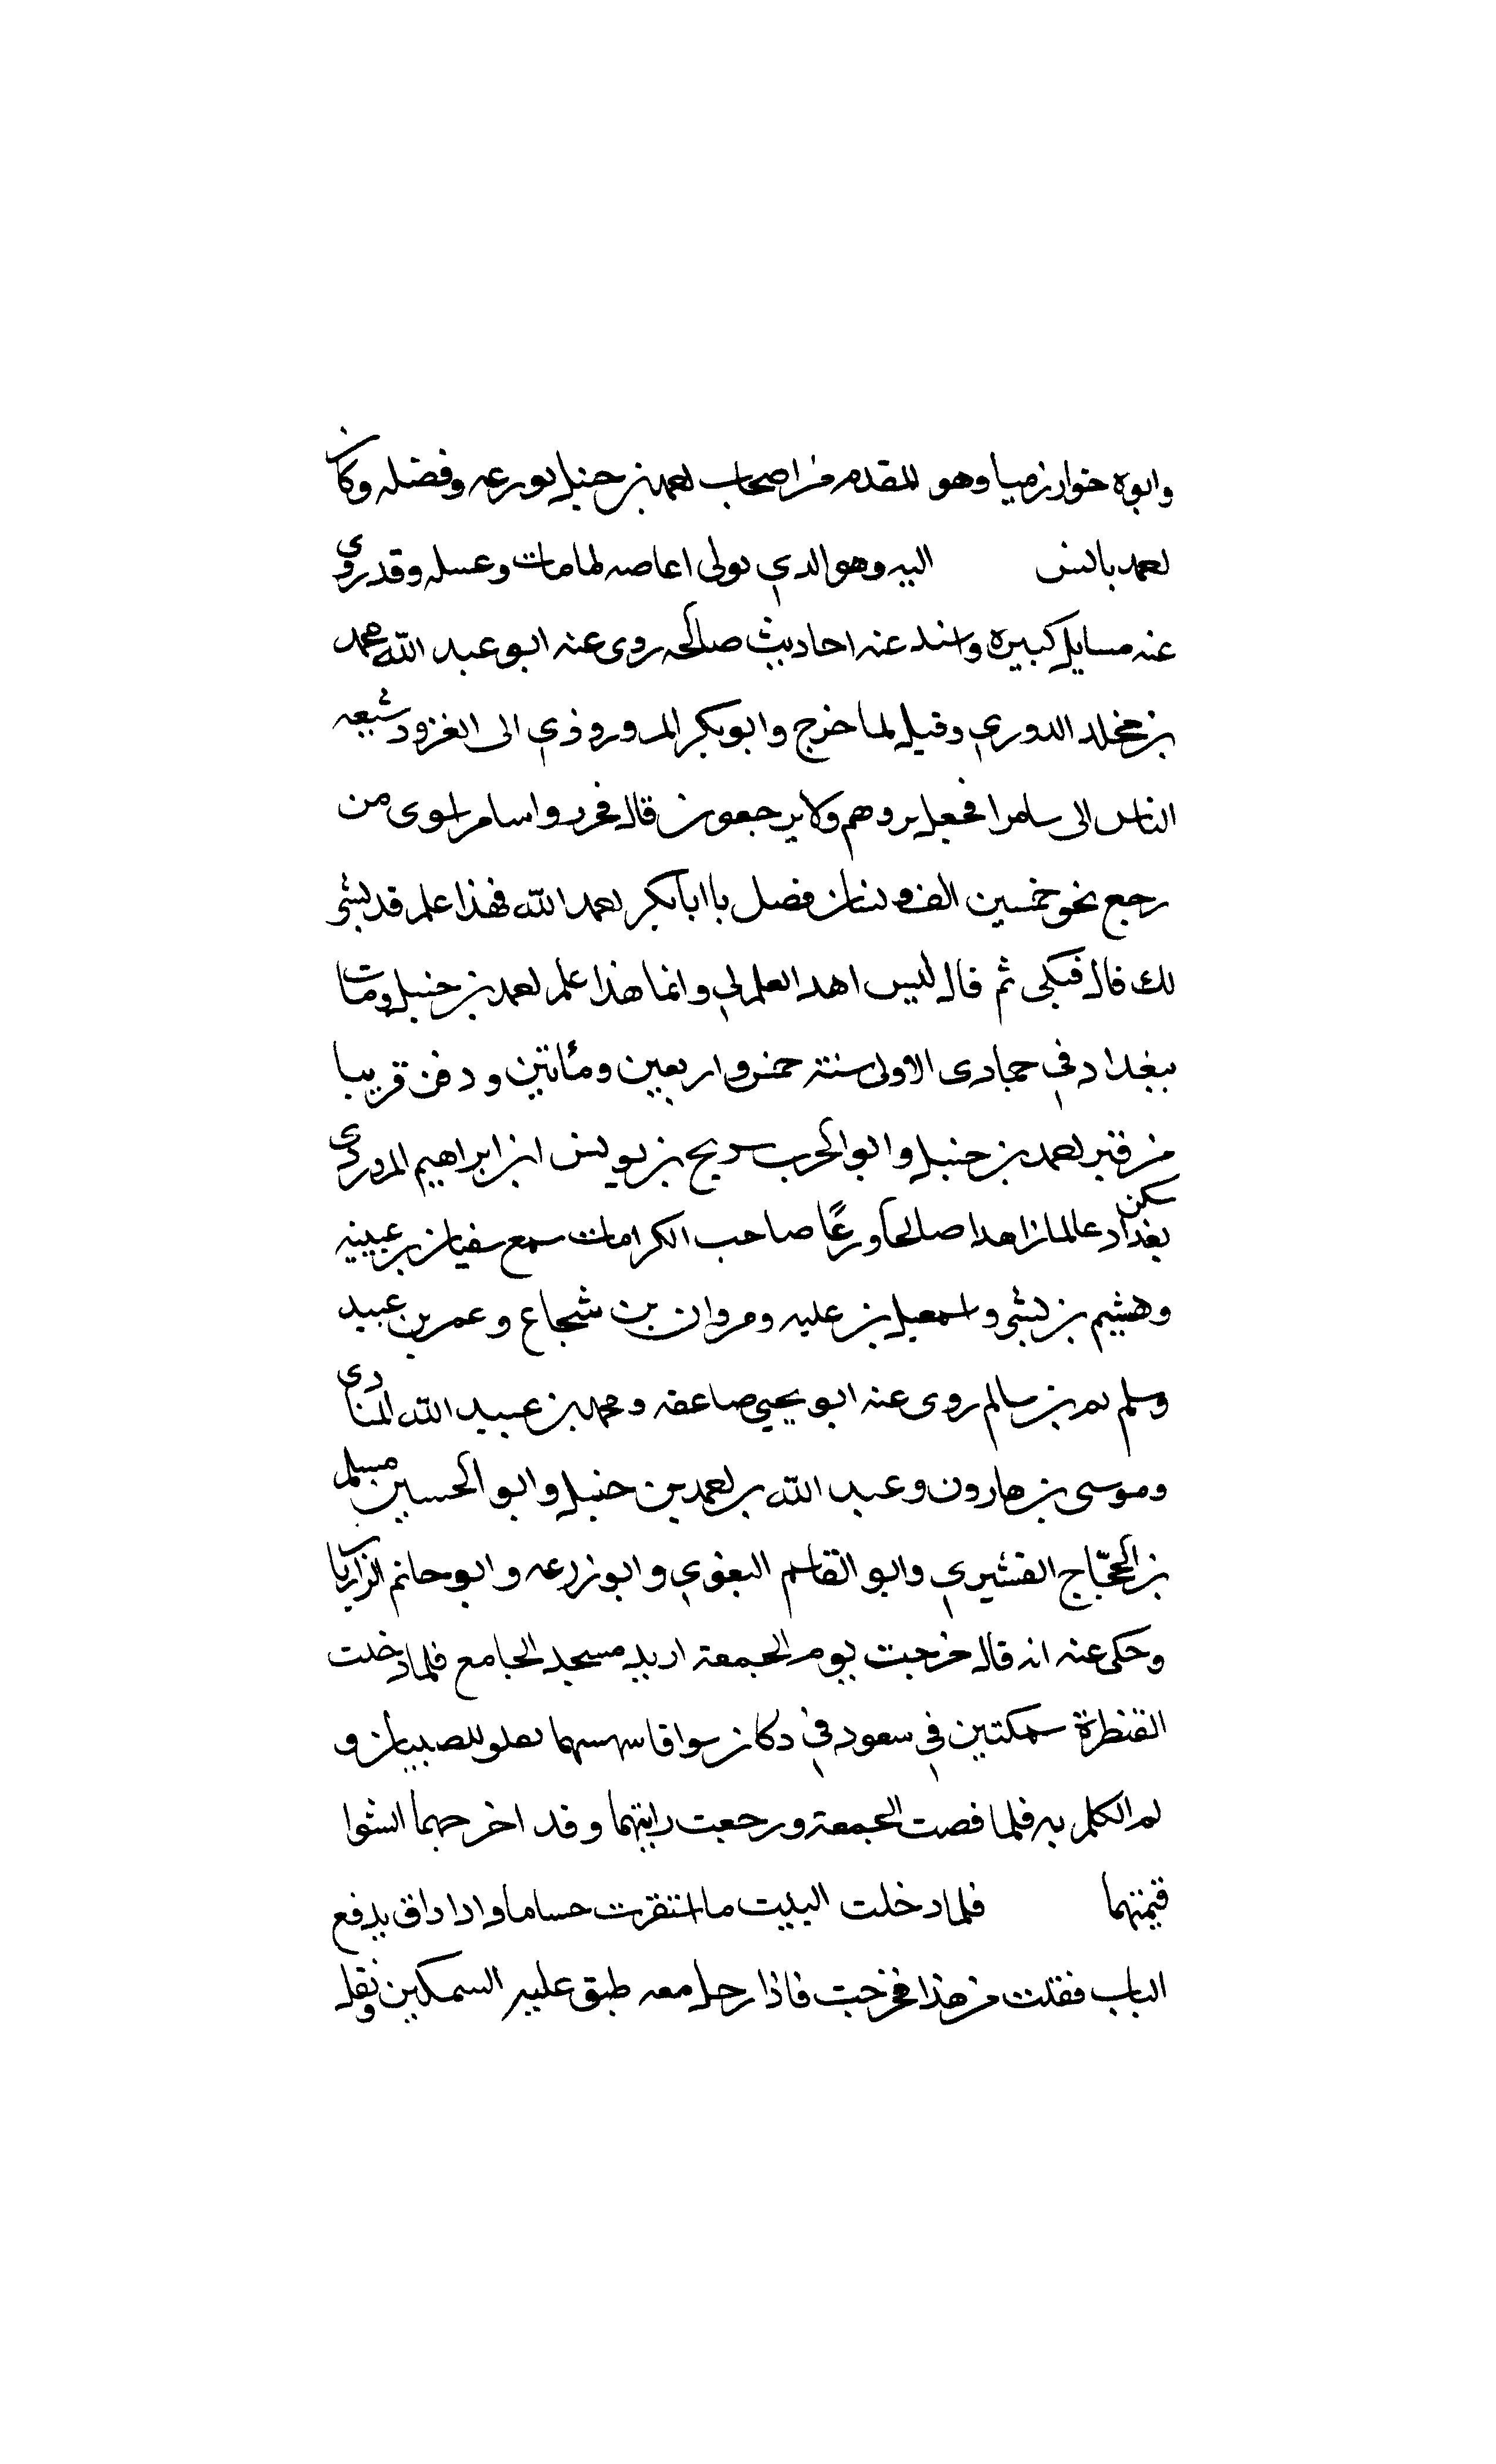 وابوه خوارزميا وهو المقدم من اصحاب احمد بن حنبل لورعه وفضله وكان
احمد بانس اليه وهو الدي تولى اغماضه لما مات وغسله وقد روى
عنه مسايل كبيره واسند عنه احاديث صالحه روى عنه ابو عبد الله محمد
بن مخلد الدوري وقيل لما خرج وابو بكر المروروذي الى الغزو شيعه
الناس الى سامرا فجعل يردهم ولا يرجعون قال فحرروا سامرا سوى من
رجع نحو خمسين الف انسان فقيل يا ابا بكر احمد الله فهذا علم قد نشر
لك قال فبكى ثم قال ليس هدا العلم لي وانما هذا علم احمد بن حنبل ومات
ببغداد في جمادى الاولى سنة خمس واربعين ومأتين ودفن قريبا
من قبر احمد بن حنبل وابو الحرب سريج بن يونس ابن ابراهيم المروردي
سكن بغداد عالما زاهدا صالحا ورعًا صاحب الكرامات سمع سفيان بن عيينه
وهشيم بن بشر واسمعيل بن عليه ومروان بن شجاع وعمر بن عبيد
وسلم بن سالم روى عنه ابو يحيى صاعقه ومحمد بن عبيد الله المنادى
وموسى بن هارون وعبد الله بن احمد بن حنبل وابو الحسين مسلم
بن الحجّاج القشيري وابو القاسم البغوي وابو زرعه وابو حاتم الرازيان
وحكى عنه انه قال خرجت يوم الجمعة اريد مسجد الجامع فلما دخلت
القنطرة سمكتين في سفود في دكان سوا للصبيان و
لم اتكلم به فلما قضت الجمعة ورجعت رايتهما وقد اخرجهما الشوا
قيمتهما فلما دخلت البيت ما استقرت دخلت يدفع
الباب فقلت من هذا فخرجت فاذا رجل معه طبق عليه السمكتين وبقل